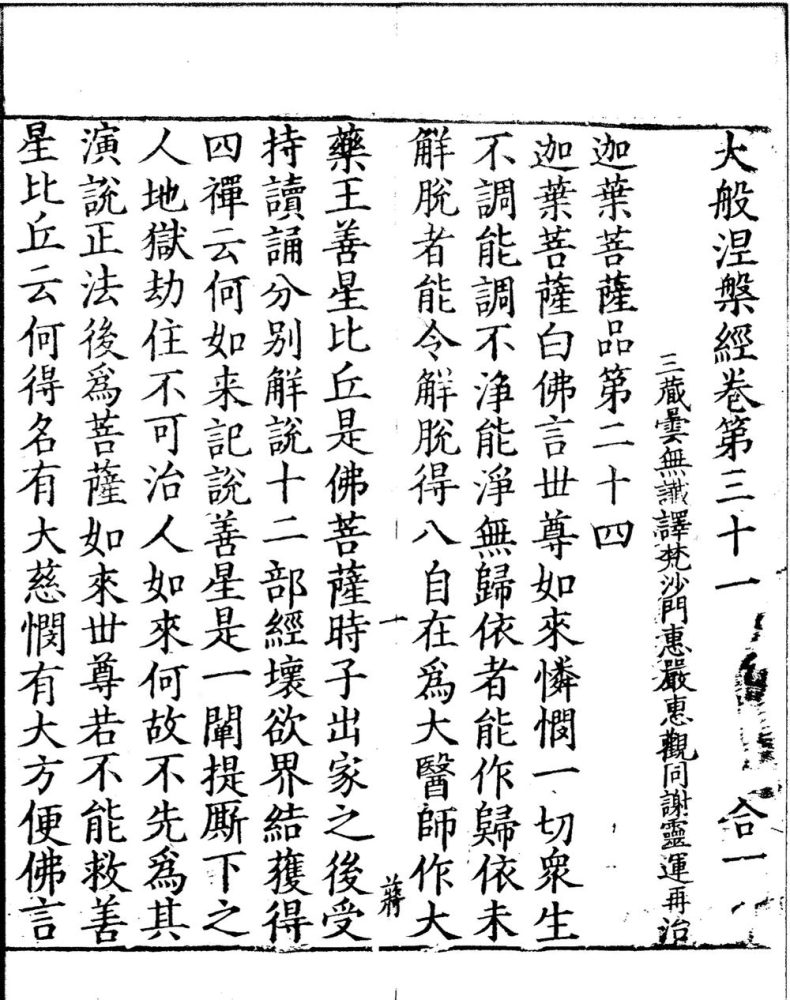 大般涅槃經卷第三十一 合一
三藏曇無讖譯梵沙門惠嚴惠觀同謝靈運再治
迦葉菩薩品第二十四
迦葉菩薩白佛言丗尊如來憐憫一切衆生
不調能調不淨能淨無歸依者能作歸依未
解脫者能令解脫得八自在爲大醫師作大
一 蔣
藥王善星比丘是佛菩薩時子出家之後受
持讀誦分別解說十二部經壞欲界結獲得
四禪云何如来記說善星是一闡提厮下之
人地獄劫住不可治人如來何故不先爲其
演說正法後爲菩薩如來丗尊若不能救善
星比丘云何得名有大慈憫有大方便佛言